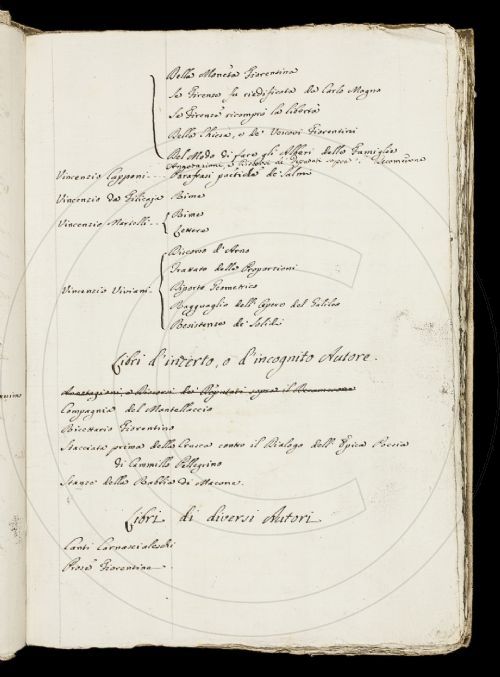 Della Moneta Fiorentina
Se Firenze fu riedificata da Carlo Magno
Se Firenze ricomprò la libertà
Della Chiesa, e de' Vescovi Fiorentini
Del Modo di fare gli Alberi delle Famiglie
Annotazioni, e Discorsi de' Deputati sopra il Decamerone
Vincenzio Capponi.. Parafrasi poetiche de' Salmi
Vincenzio da Filicaja Rime
Vincenzio Martelli.. Rime
Lettere
Discorso d'Arno
Trattato delle Proporzioni
Vincenzio Viviani. Diporto Geometrico
Ragguaglio dell'Opere del Galileo
Resistenze de' Solidi
Libri d'incerto, o d'incognito Autore.
Annotazioni, e Discorsi de' Deputati sopra il Decamerone
Compagnia del Mantellaccio
Ricettario Fiorentino
Stacciata prima della Crusca contro il Dialogo dell'Epica Poesia
di Cammillo Pellegrino
Stanze della Rabbia di Macone.
Libri di diversi Autori
Canti Carnascialeschi
Prose Fiorentine